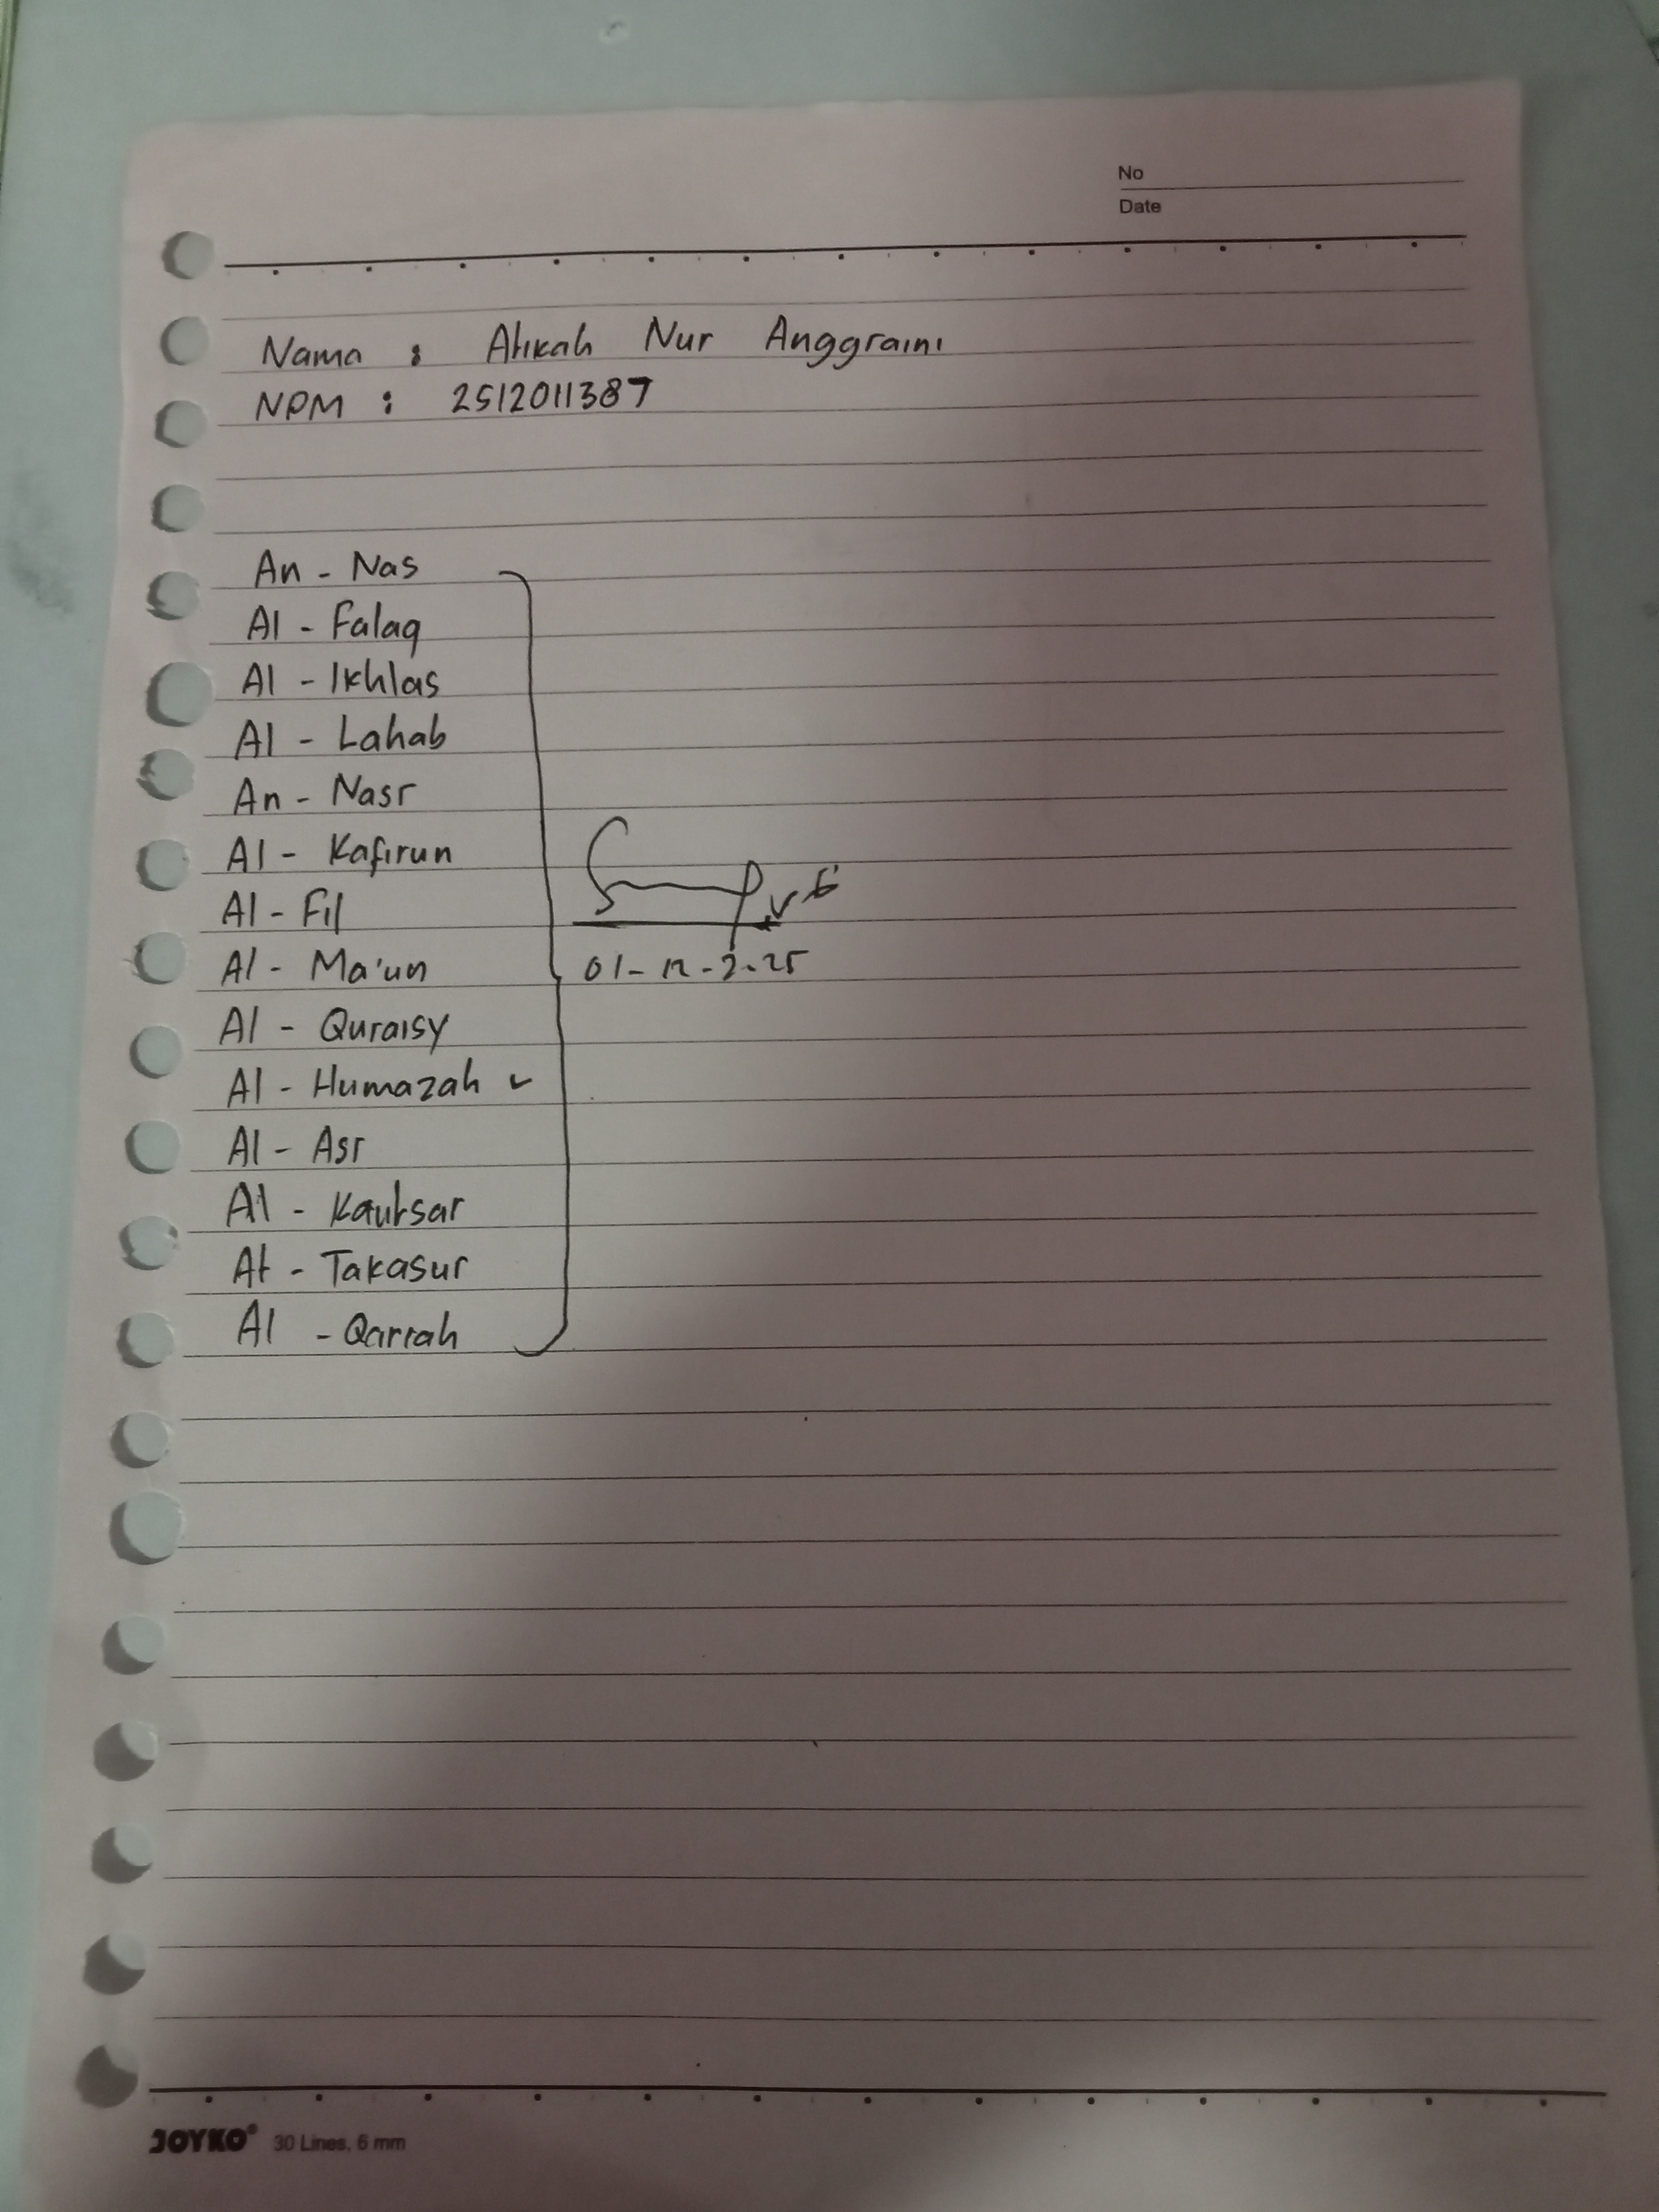 No
Date
Nama : Atikah Nur Anggraini
NPM : 2512011387
An - Nas
Al - Falaq
Al - Ikhlas
Al - Lahab
An - Nasr
Al - Kafirun
Al - Fil
Al - Ma'un
01-12-2025
Al - Quraisy
Al - Humazah ✓
Al - Asr
Al - Kautsar
At - Takasur
Al - Qariah
JOYKO® 30 Lines, 6 mm